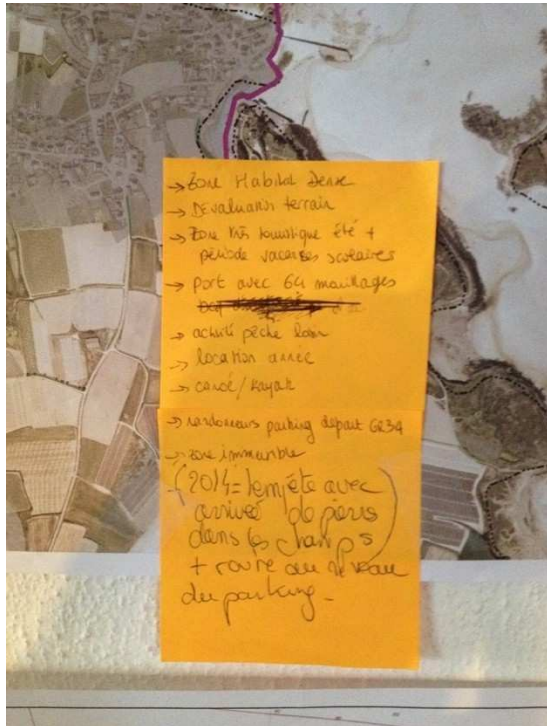 → Zone Habitat Dense
→ Dévaluation terrain
→ Zone très touristique été +
période vacances scolaires
→ port avec 64 mouillages
→ activité pêche loisir
→ location année
→ canoé/kayak
→ randonneurs parking départ GR34
→ zone immersible
(2014 = tempête avec
arrivée de
dans les champs
+ route au niveau
du parking -